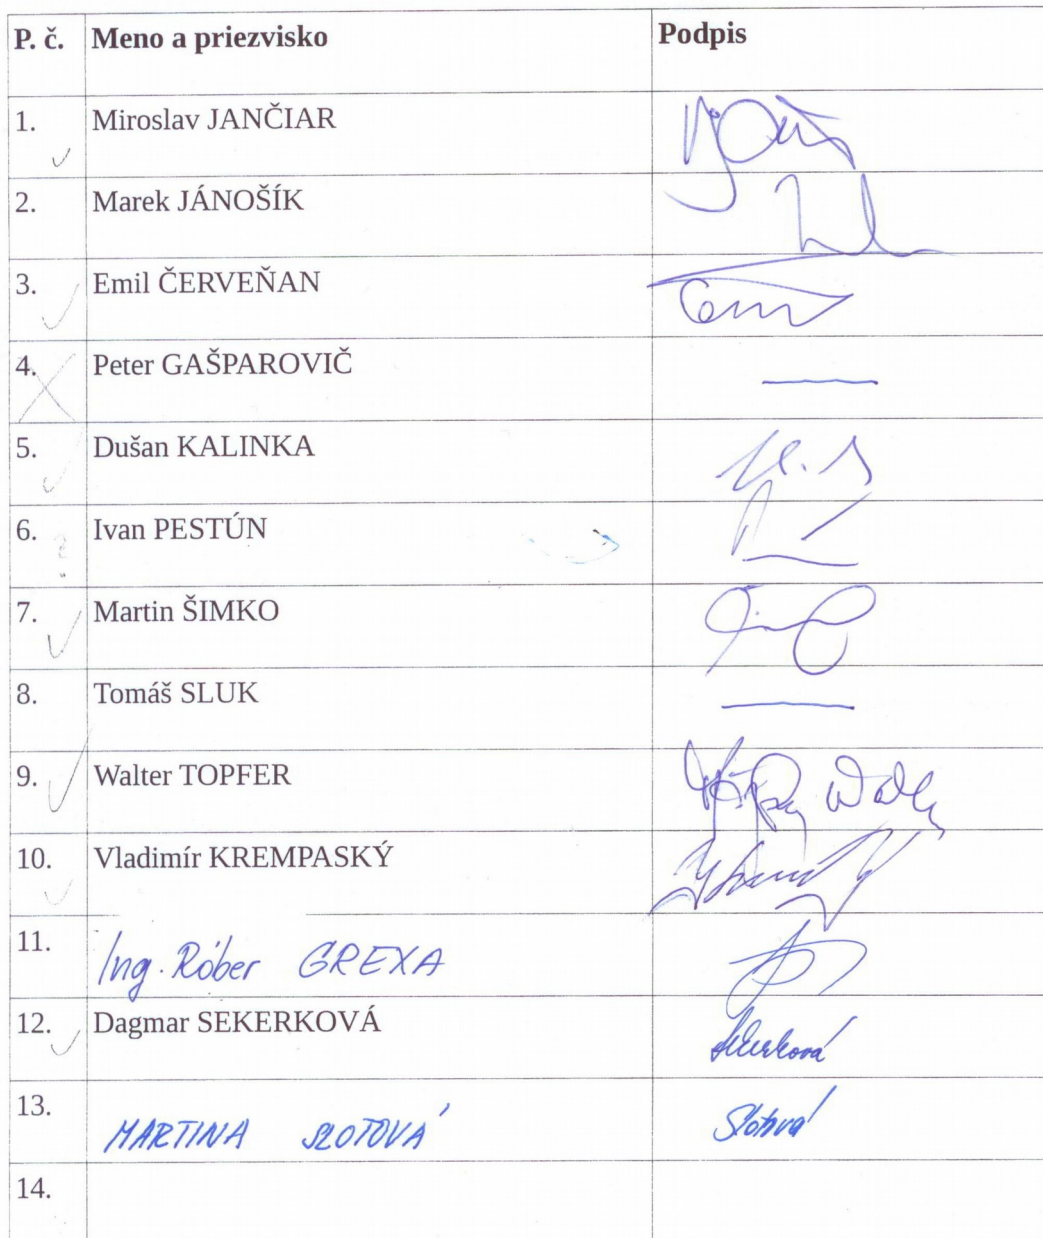 P. č. Meno a priezvisko Podpis
1. Miroslav JANČIAR
2. Marek JÁNOŠÍK
3. Emil ČERVEŇAN
4. Peter GAŠPAROVIČ
5. Dušan KALINKA
6. Ivan PESTÚN
7. Martin ŠIMKO
8. Tomáš SLUK
9. Walter TOPFER
10. Vladimír KREMPASKÝ
11. Ing. Róber GREXA
12. Dagmar SEKERKOVÁ Sekerková
13. MARTINA SLOTOVÁ Slotová
14.